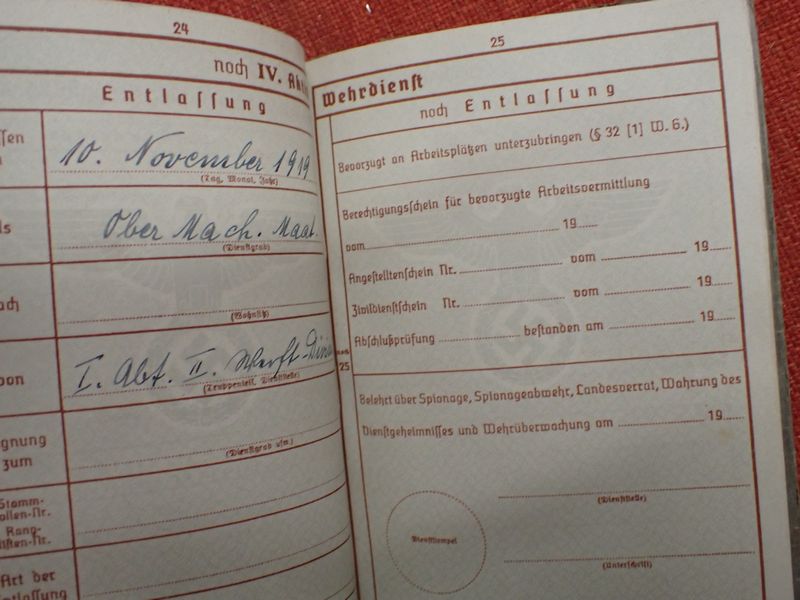 24
noch IV. Akt
Entlassung
10. November 1919
(Tag, Monat, Jahr)
Ober Mach. Maat.
(Dienstgrad)
(Wohnsitz)
I. Abt. II. Werft-Divis
(Truppenteil, Dienststelle)
gnung
zum
(Dienstgrad usw.)
Stamm-
ollen-Nr.
Rang-
isten-Nr.
Art der
ntlassung
25
Wehrdienst
noch Entlassung
Bevorzugt an Arbeitsplätzen unterzubringen (§ 32 [1] W. G.)
Berechtigungsschein für bevorzugte Arbeitsvermittlung
vom 19
Angestelltenschein Nr. vom 19
Zivildienstschein Nr. vom 19
Abschlußprüfung bestanden am 19
25
Belehrt über Spionage, Spionageabwehr, Landesverrat, Wahrung des
Dienstgeheimnisses und Wehrüberwachung am 19
(Dienststelle)
Dienststempel
(Unterschrift)